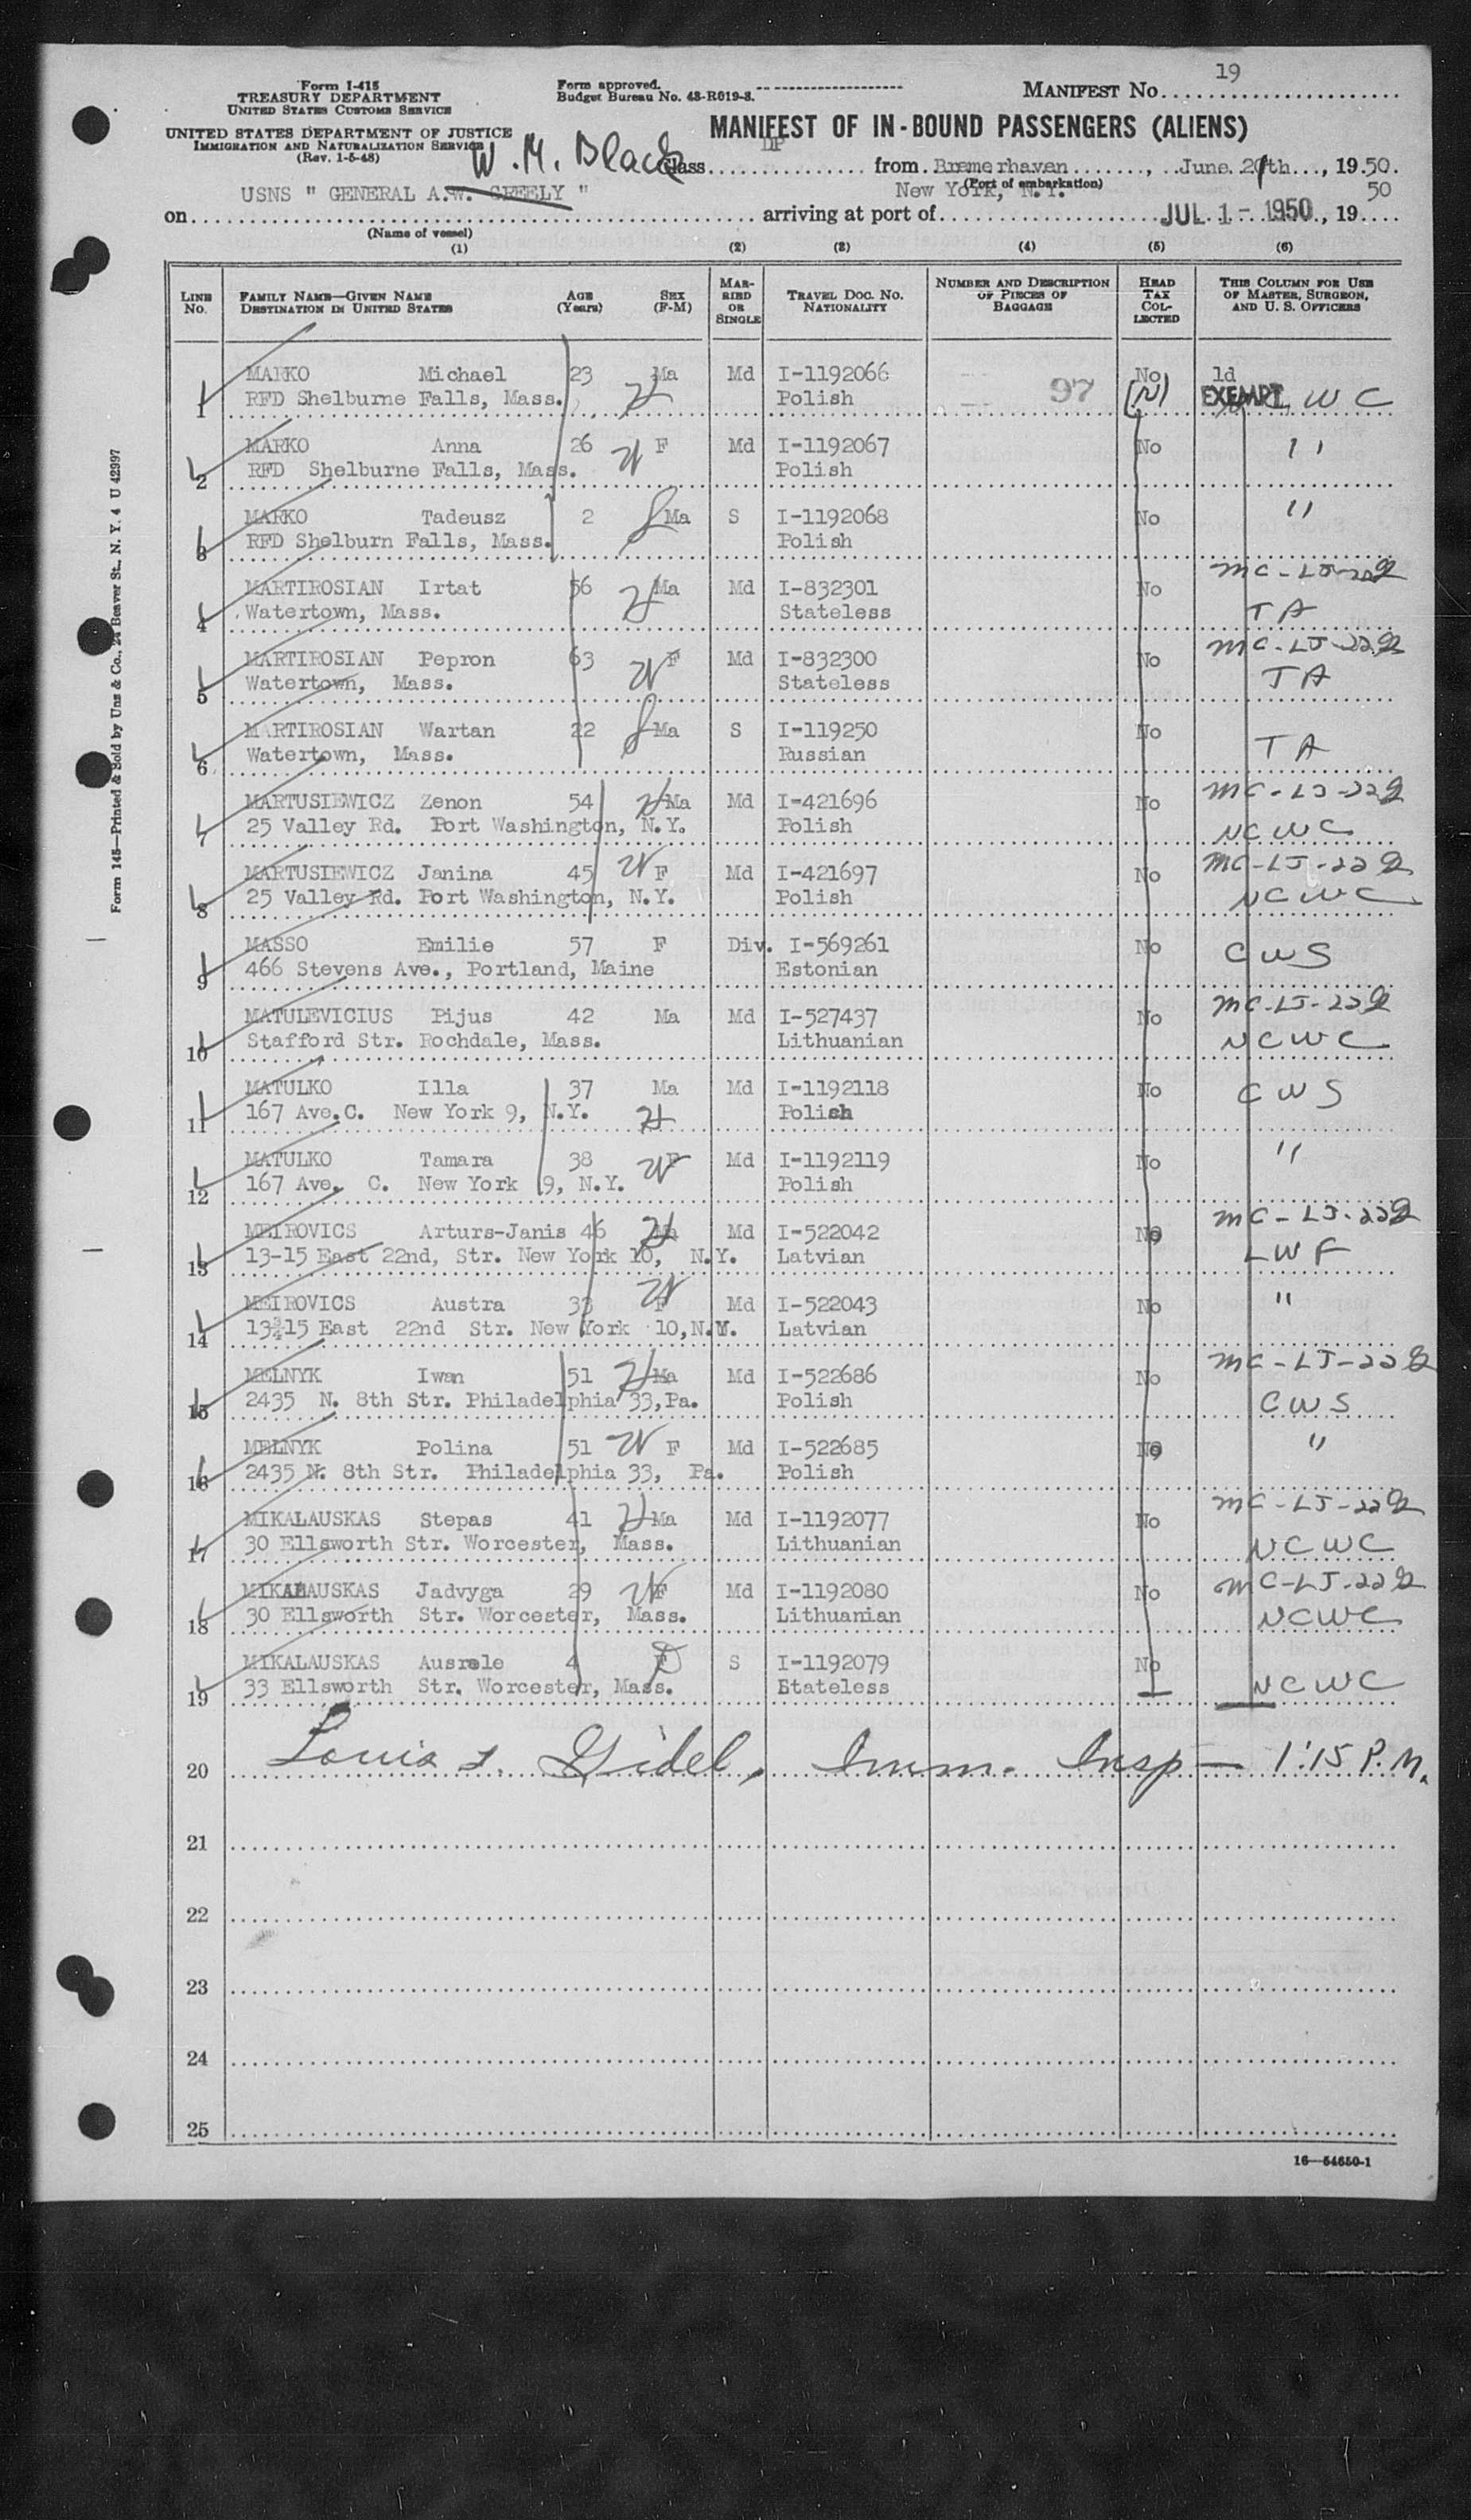 Form I-415
TREASURY DEPARTMENT
UNITED STATES CUSTOMS SERVICE
UNITED STATES DEPARTMENT OF JUSTICE
IMMIGRATION AND NATURALIZATION SERVICE
(Rev. 1-5-48)
Form approved.
Budget Bureau No. 43-R019-3.
19
MANIFEST No.
MANIFEST OF IN-BOUND PASSENGERS (ALIENS)
W. M. Black
Class DP from Bremerhaven, June 21th, 1950.
(Port of embarkation)
USNS " GENERAL A.W. GREELY " New York, N.Y. 50
on arriving at port of JUL 1 - 1950, 19
(Name of vessel)
(1) (2) (3) (4) (5) (6)
LINE No. FAMILY NAME—GIVEN NAME DESTINATION IN UNITED STATES AGE (Years) SEX (F-M) MARRIED OR SINGLE TRAVEL DOC. NO. NATIONALITY NUMBER AND DESCRIPTION OF PIECES OF BAGGAGE HEAD TAX COLLECTED THIS COLUMN FOR USE OF MASTER, SURGEON, AND U. S. OFFICERS
MARKO Michael 23 Ma Md I-1192066 97 No 1d
1 RFD Shelburne Falls, Mass. Polish (N) EXEMPT WC
MARKO Anna 26 F Md I-1192067 No "
2 RFD Shelburne Falls, Mass. Polish
MARKO Tadeusz 2 Ma S I-1192068 No "
3 RFD Shelburn Falls, Mass. Polish
MARTIROSIAN Irtat 56 Ma Md I-832301 No MC-LJ-22
4 Watertown, Mass. Stateless TA
MARTIROSIAN Pepron 63 F Md I-832300 No MC-LJ-22
5 Watertown, Mass. Stateless TA
MARTIROSIAN Wartan 22 Ma S I-119250 No
6 Watertown, Mass. Russian TA
MARTUSIEWICZ Zenon 54 Ma Md I-421696 No MC-LJ-22
7 25 Valley Rd. Port Washington, N.Y. Polish NCWC
MARTUSIEWICZ Janina 45 F Md I-421697 No MC-LJ-22
8 25 Valley Rd. Port Washington, N.Y. Polish NCWC
MASSO Emilie 57 F Div. I-569261 No
9 466 Stevens Ave., Portland, Maine Estonian CWS
MATULEVICIUS Pijus 42 Ma Md I-527437 No MC-LJ-22
10 Stafford Str. Rochdale, Mass. Lithuanian NCWC
MATULKO Illa 37 Ma Md I-1192118 No CWS
11 167 Ave.C. New York 9, N.Y. Polish
MATULKO Tamara 38 F Md I-1192119 No "
12 167 Ave. C. New York 9, N.Y. Polish
MEIROVICS Arturs-Janis 46 Ma Md I-522042 No MC-LJ-22
13 13-15 East 22nd, Str. New York 10, N.Y. Latvian LWF
MEIROVICS Austra 33 F Md I-522043 No "
14 13-15 East 22nd Str. New York 10, N.Y. Latvian
MELNYK Iwan 51 Ma Md I-522686 No MC-LJ-22
15 2435 N. 8th Str. Philadelphia 33, Pa. Polish CWS
MELNYK Polina 51 F Md I-522685 No "
16 2435 N. 8th Str. Philadelphia 33, Pa. Polish
MIKALAUSKAS Stepas 41 Ma Md I-1192077 No MC-LJ-22
17 30 Ellsworth Str. Worcester, Mass. Lithuanian NCWC
MIKALAUSKAS Jadvyga 29 F Md I-1192080 No MC-LJ-22
18 30 Ellsworth Str. Worcester, Mass. Lithuanian NCWC
MIKALAUSKAS Ausrele 4 F S I-1192079 No
19 33 Ellsworth Str. Worcester, Mass. Stateless NCWC
20 Louis I. Gidel, Imm. Insp — 1:15 P.M.
21
22
23
24
25
16—54650-1
Form 145—Printed & Sold by Unz & Co., 24 Beaver St., N. Y. 4 U 42997